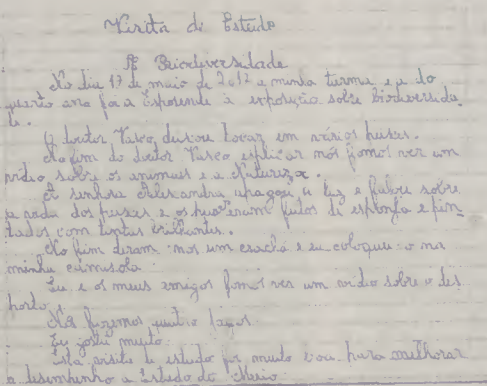 Visita de Estudo
A Bicodeversidade
No dia 17 de maio de 2012 a minha turma e a do
quarto ano foi a Esposende à exposição sobre biodiversida-
de.
O doutor Vasco deixou tocar em vários peixes.
No fim do doutor Vasco explicar nós fomos ver um
video sobre os animais e a Natureza.
A senhora Alexandra apagou a luz e falou sobre
a vida dos peixes e os eram feitos de esponja e pin-
tados com tintas brilhantes.
No fim deram-nos um crachá e eu coloquei-o na
minha camisola.
Eu e os meus amigos fomos ver um video sobre o des
porto.
Nós fizemos quatro
Eu gostei muito.
Esta visita de estudo foi muito boa para melhorar
o desempenho a Estudo do Meio.